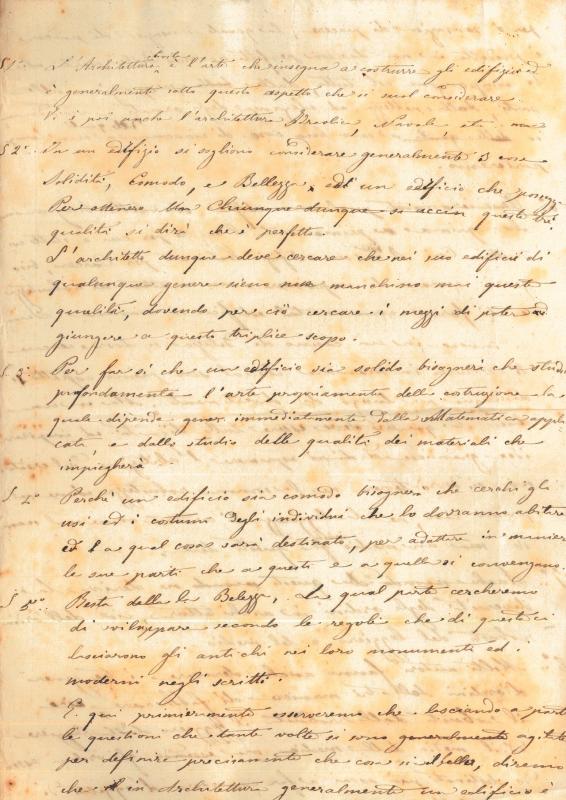 § 1° L'Architettura civile è l'arte che insegna a costrurre gli edifizi ed
è generalmente sotto questo aspetto che si suol considerare.
Vi è poi anche l'architettura Idraulica, Navale, etc. ma
§ 2° In un edifizio si sogliono considerare generalmente 3 cose
Solidità, Comodo, e Bellezza, ed un edificio che possegga
Per ottenere Un Chiunque dunque si accin queste tre
qualità si dirà che è perfetto.
L'architetto dunque deve cercare che nei suo edifici di
qualunque genere sieno non manchino mai queste
qualità, dovendo per ciò cercare i mezzi di poter ad
giungere a questo triplice scopo.
§. 3° Per far sì che un edificio sia solido bisognerà che studi
profondamente l'arte propriamente della costruzione la
quale dipende gener. immediatamente dalla Matematica appli
cata, e dallo studio delle qualità dei materiali che
impiegherà
§. 4° Perchè un edificio sia comodo bisognerà che cerchi gli
usi ed i costumi degli individui che lo dovranno abitare
ed a qual cosa sarà destinato, per adattare in manier
le sue parti che a questi e a quella si convengano.
§ 5° Resta della la Belezza, La qual parte cercheremo
di sviluppare secondo le regole che di questa ci
lasciarono gli antichi nei loro monumenti ed i
moderni negli scritti.
E qui primieramente osserveremo che lasciando a parte
le questioni che tante volte si sono generalmente agitate
per definire precisamente che cosa sia il bello, diremo
che in Architettura generalmente un edificio è